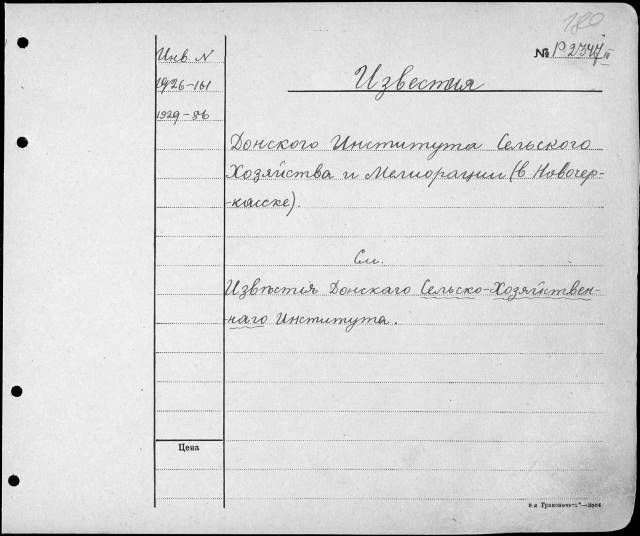 180
№ Р2347 III
Инв N
1926-161
1929-86
Известия
Донского Института Сельского
Хозяйства и Мелиорации (в Новочер-
-касске).
См.
Извѣстия Донскаго Сельско-Хозяйствен-
-наго Института.
Цена